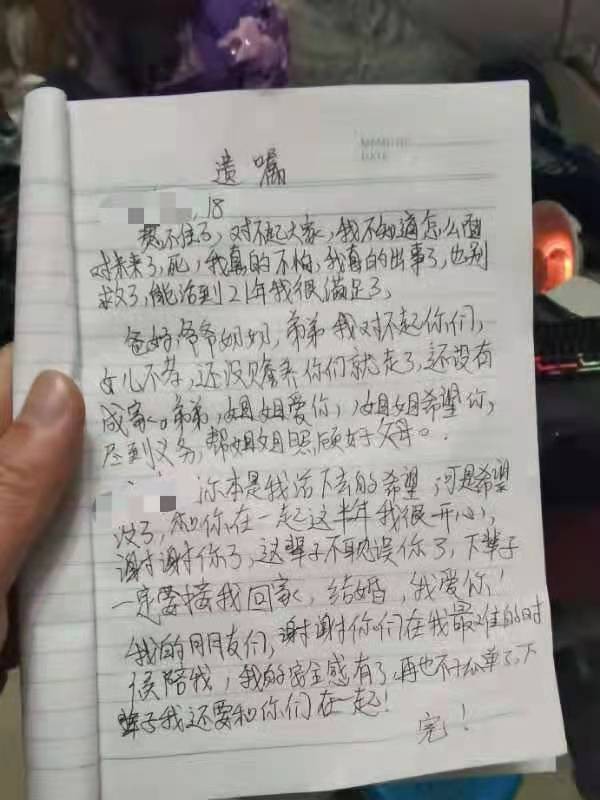 MEMO NO.
DATE
遗嘱
18
撑不住了，对不起大家，我不知道怎么面
对未来了，死，我真的不怕，我真的出事了，也别
救了，能活到21年我很满足了，
爸妈，爷爷奶奶，弟弟我对不起你们，
女儿不孝，还没赡养你们就走了，还没有
成家。弟弟，姐姐爱你，姐姐希望你，
尽到义务，帮姐姐照顾好父母。
你本是我活下去的希望 可是希望
没了，和你在一起这半年我很开心，
谢谢谢你了，这辈子不耽误你了，下辈子
一定要接我回家，结婚，我爱你！
我的朋友们，谢谢你们在我最难的时
候陪我，我的安全感有了，再也不孤单了，下
辈子我还要和你们在一起！
完！